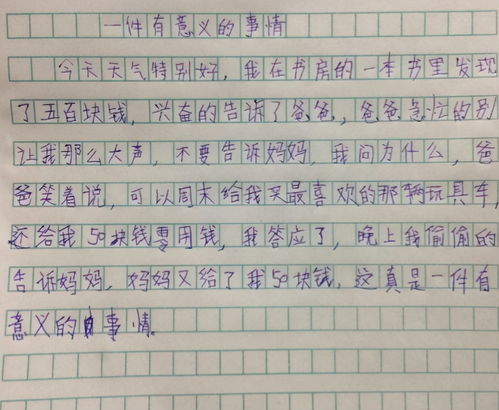 一件有意义的事情
今天天气特别好，我在书房的一本书里发现
了五百块钱，兴奋的告诉了爸爸，爸爸急忙的别
让我那么大声，不要告诉妈妈，我问为什么，爸
爸笑着说，可以周末给我买最喜欢的那辆玩具车，
还给我50块钱零用钱，我答应了，晚上我偷偷的
告诉妈妈，妈妈又给了我50块钱，这真是一件有
意义的事情。